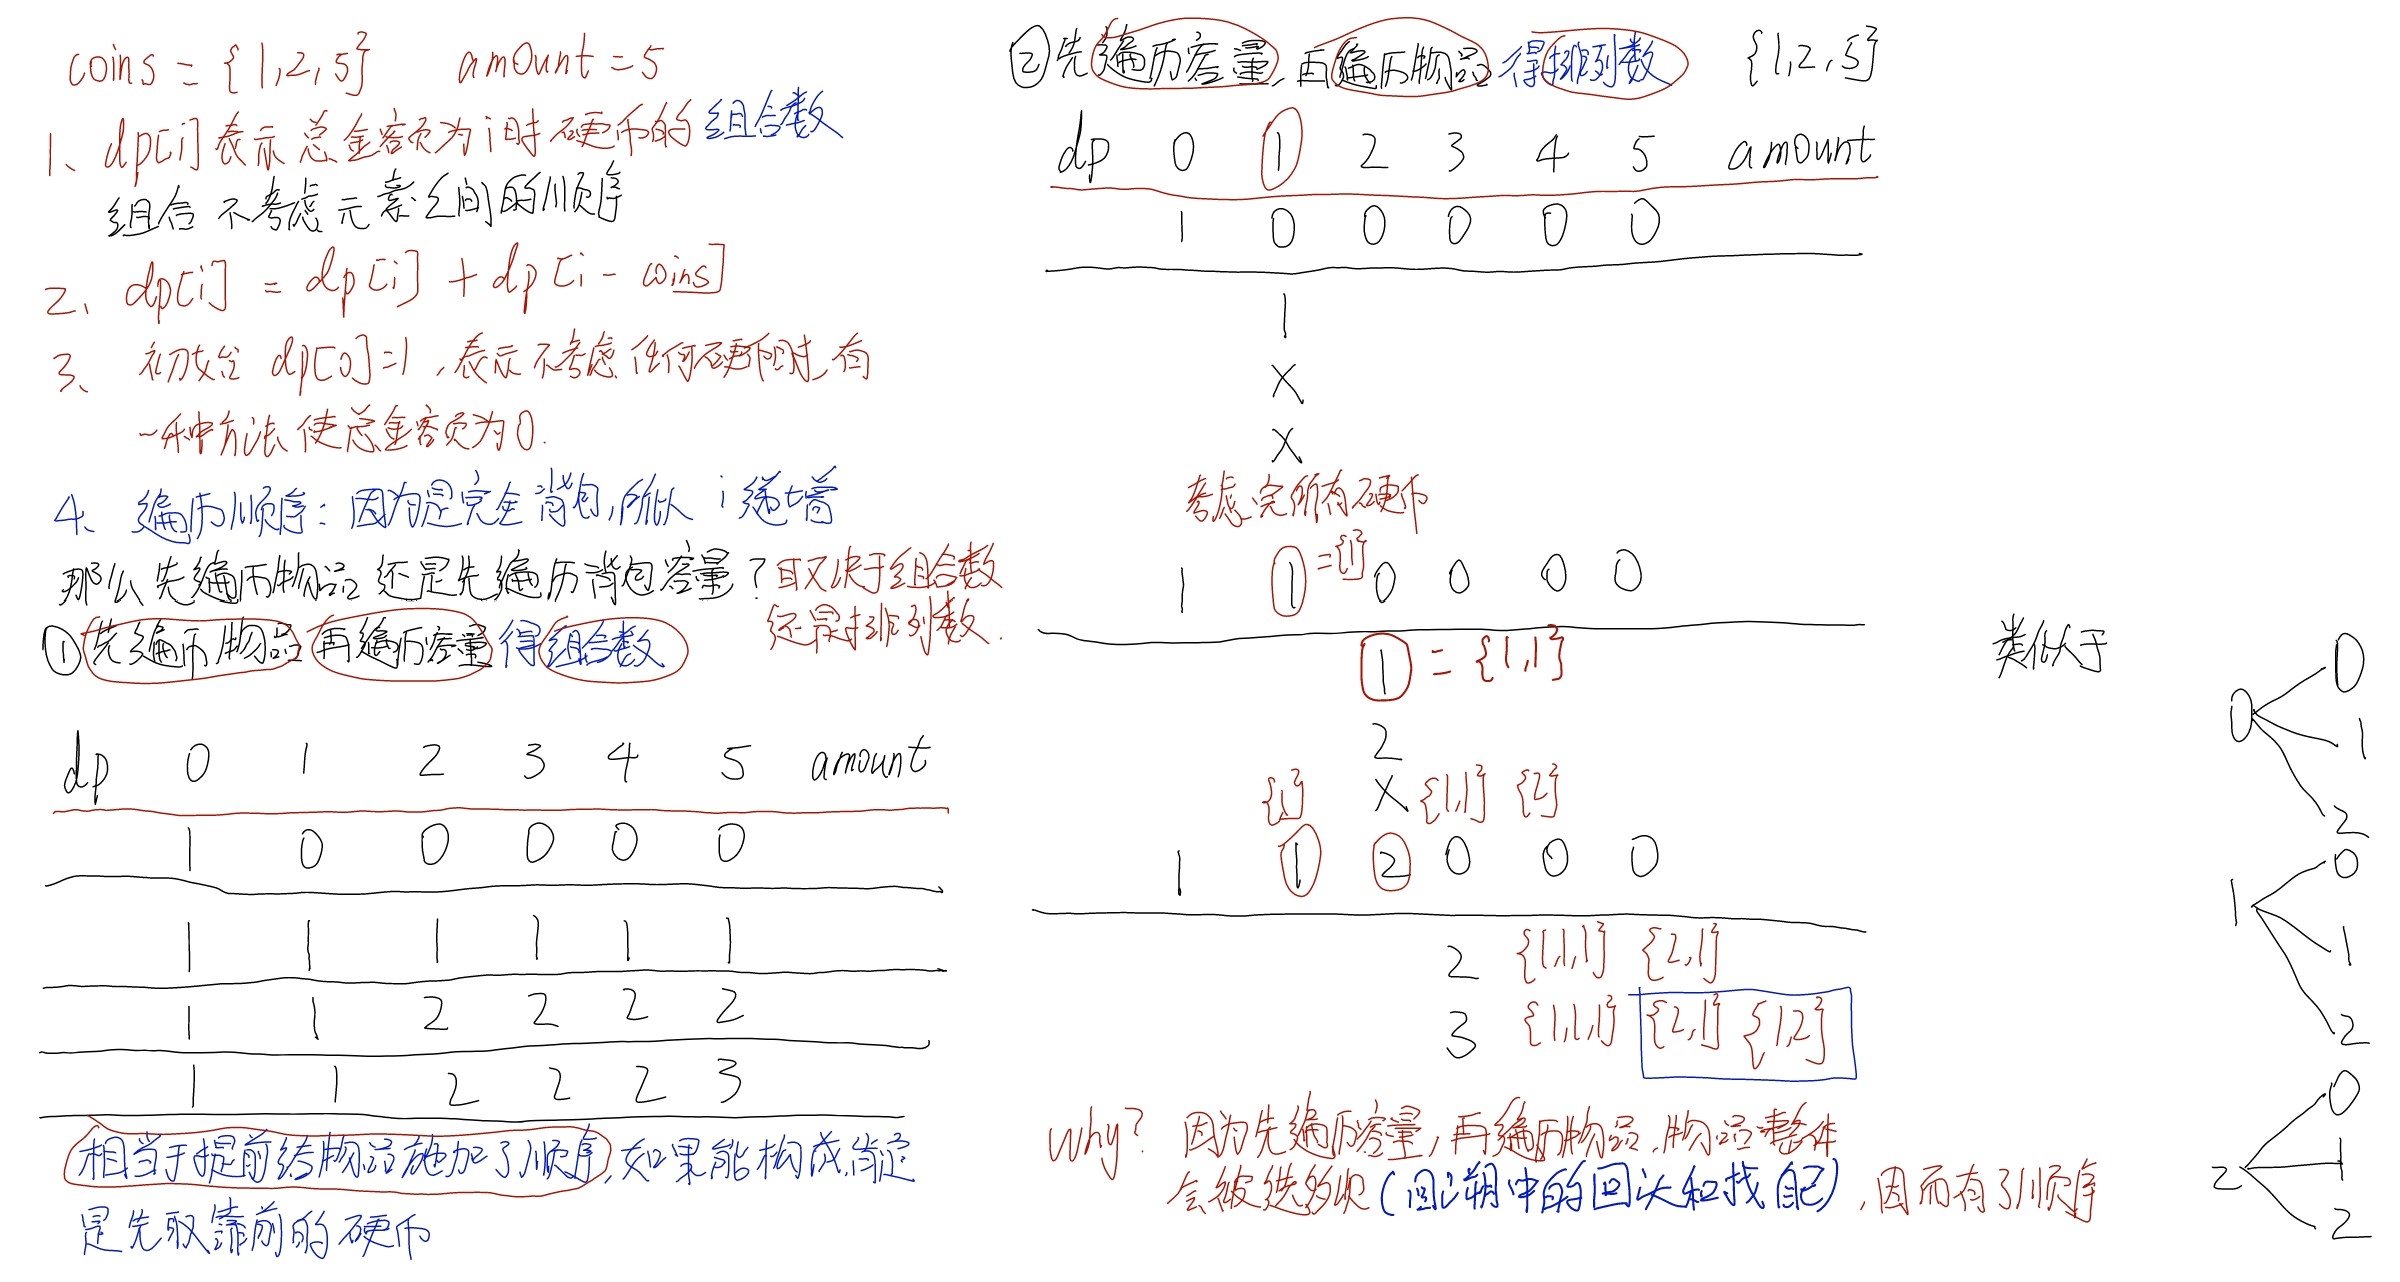 coins = {1,2,5} amount = 5
1、dp[i]表示总金额为i时硬币的组合数
组合不考虑元素之间的顺序
2、dp[i] = dp[i] + dp[i - coins]
3、初始 dp[0]=1,表示不考虑任何硬币时,有
一种方法使总金额为0.
4、遍历顺序:因为是完全背包,所以 i 递增
那么先遍历物品还是先遍历背包容量?取决于组合数
还是排列数.
①先遍历物品再遍历容量得组合数
dp 0 1 2 3 4 5 amount
1 0 0 0 0 0
1 1 1 1 1 1
1 1 2 2 2 2
1 1 2 2 2 3
相当于提前给物品施加了顺序,如果能构成,肯定
是先取靠前的硬币
②先遍历容量,再遍历物品得排列数 {1,2,5}
dp 0 1 2 3 4 5 amount
1 0 0 0 0 0
1
X
X
考虑完所有硬币
1 1 ={1} 0 0 0 0
1 = {1,1}
2
{1} X {1,1} {2}
1 1 2 0 0 0
2 {1,1,1} {2,1}
3 {1,1,1} {2,1} {1,2}
why? 因为先遍历容量,再遍历物品,物品整体
会被选多次(回溯中的回头和找自己),因而有了顺序
类似于
0
0
1
2
1
0
1
2
2
0
1
2